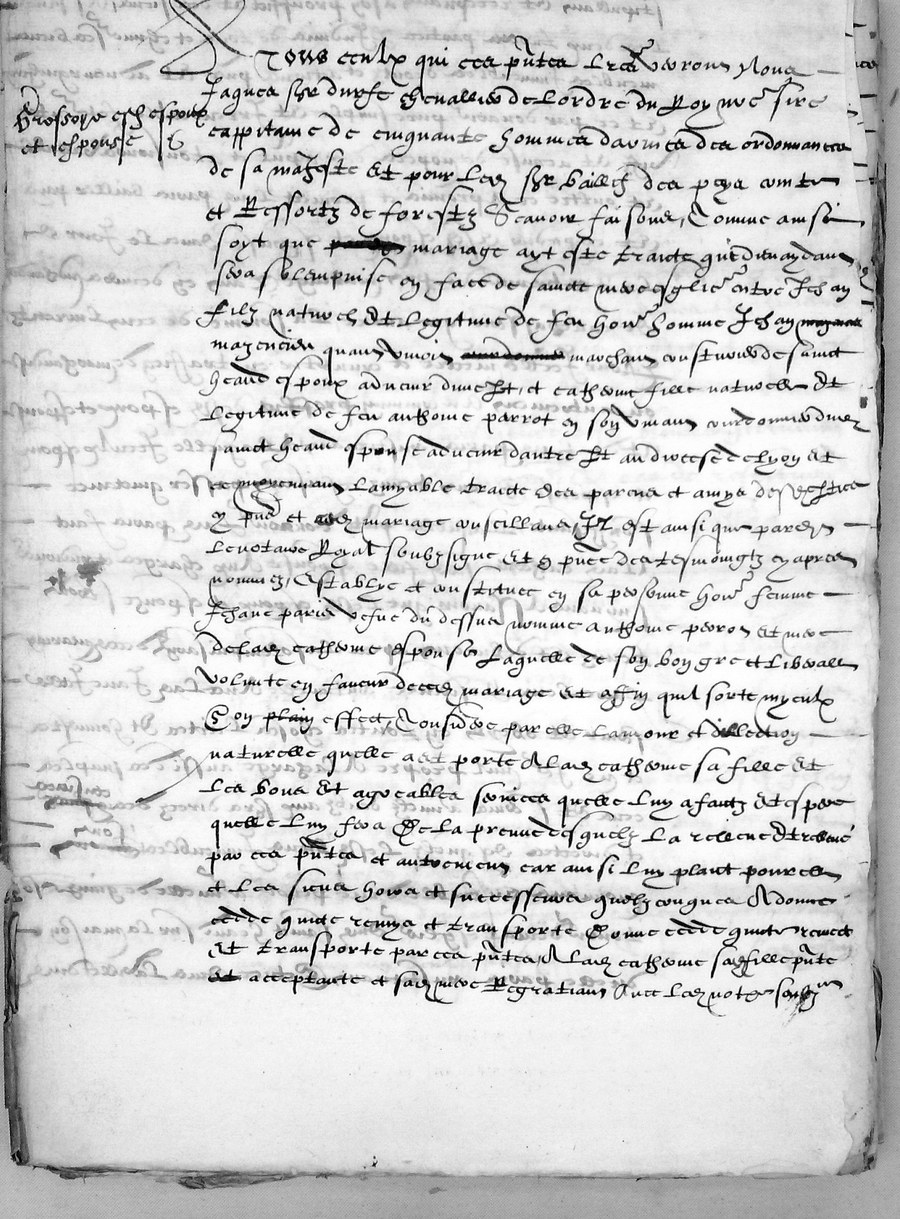 A Tous ceulx qui ces pntes lres verront Nous
Jaques Sgr durfe chevallier de lordre du Roy nre sire
Grossoye esd espoux
et espouse
cappitaine de cinquante hommes darmes des ordonnances
de sa majeste et pour led Sgr bailly des pays conte
et Ressortz de forestz Scavoir faisons, Comme ainsi
soyt que mariage ayt este traicte
sera solempnise en face de saincte mere esglise entre Jehan
filz naturel et legitime de feu honn homme Jehan
mazencieu quant vivoit marchant cousturier de sainct
heand espoux advenir dune pt, et catherine fille naturelle et
legitime de feu anthoine parrot en son vivant cordonnier dud
sainct heand espouse advenir dautre pt au diocese de lyon et
ce moyennant lamyable traicte des parens et amys desd parties
cy pns et ced mariage conseillans, Il est ainsi que pardev
le notaire Royal soubzsigne et en pnce des tesmoingtz cy apres
nommez, establye et constituee en sa personne honn femme
Jehane paris vefve du dessus nomme anthoine perrot et mere
de lad catherine espouse laquelle de son bon gre et liberalle
volunte en faveur de ced mariage et affin quil sorte myeulx
Son plain effect, Considere par elle lamour et dillection
naturelle quelle a et porte A lad catherine sa fille et
les bons et agreables services quelle luy a faictz et espere
quelle luy fera De la preuve desquelz la relieve et relieve
par ces pntes et autrement car ainsi luy plaict pour elle
et les siens hoirs et successeurs quelzconques A donne
cedde quicte remys et transporte Donne cedde quicte remect
et transporte par ces pntes, A lad catherine sad fille pnte
et acceptante et sad mere Regratiant Avec led notre soubz